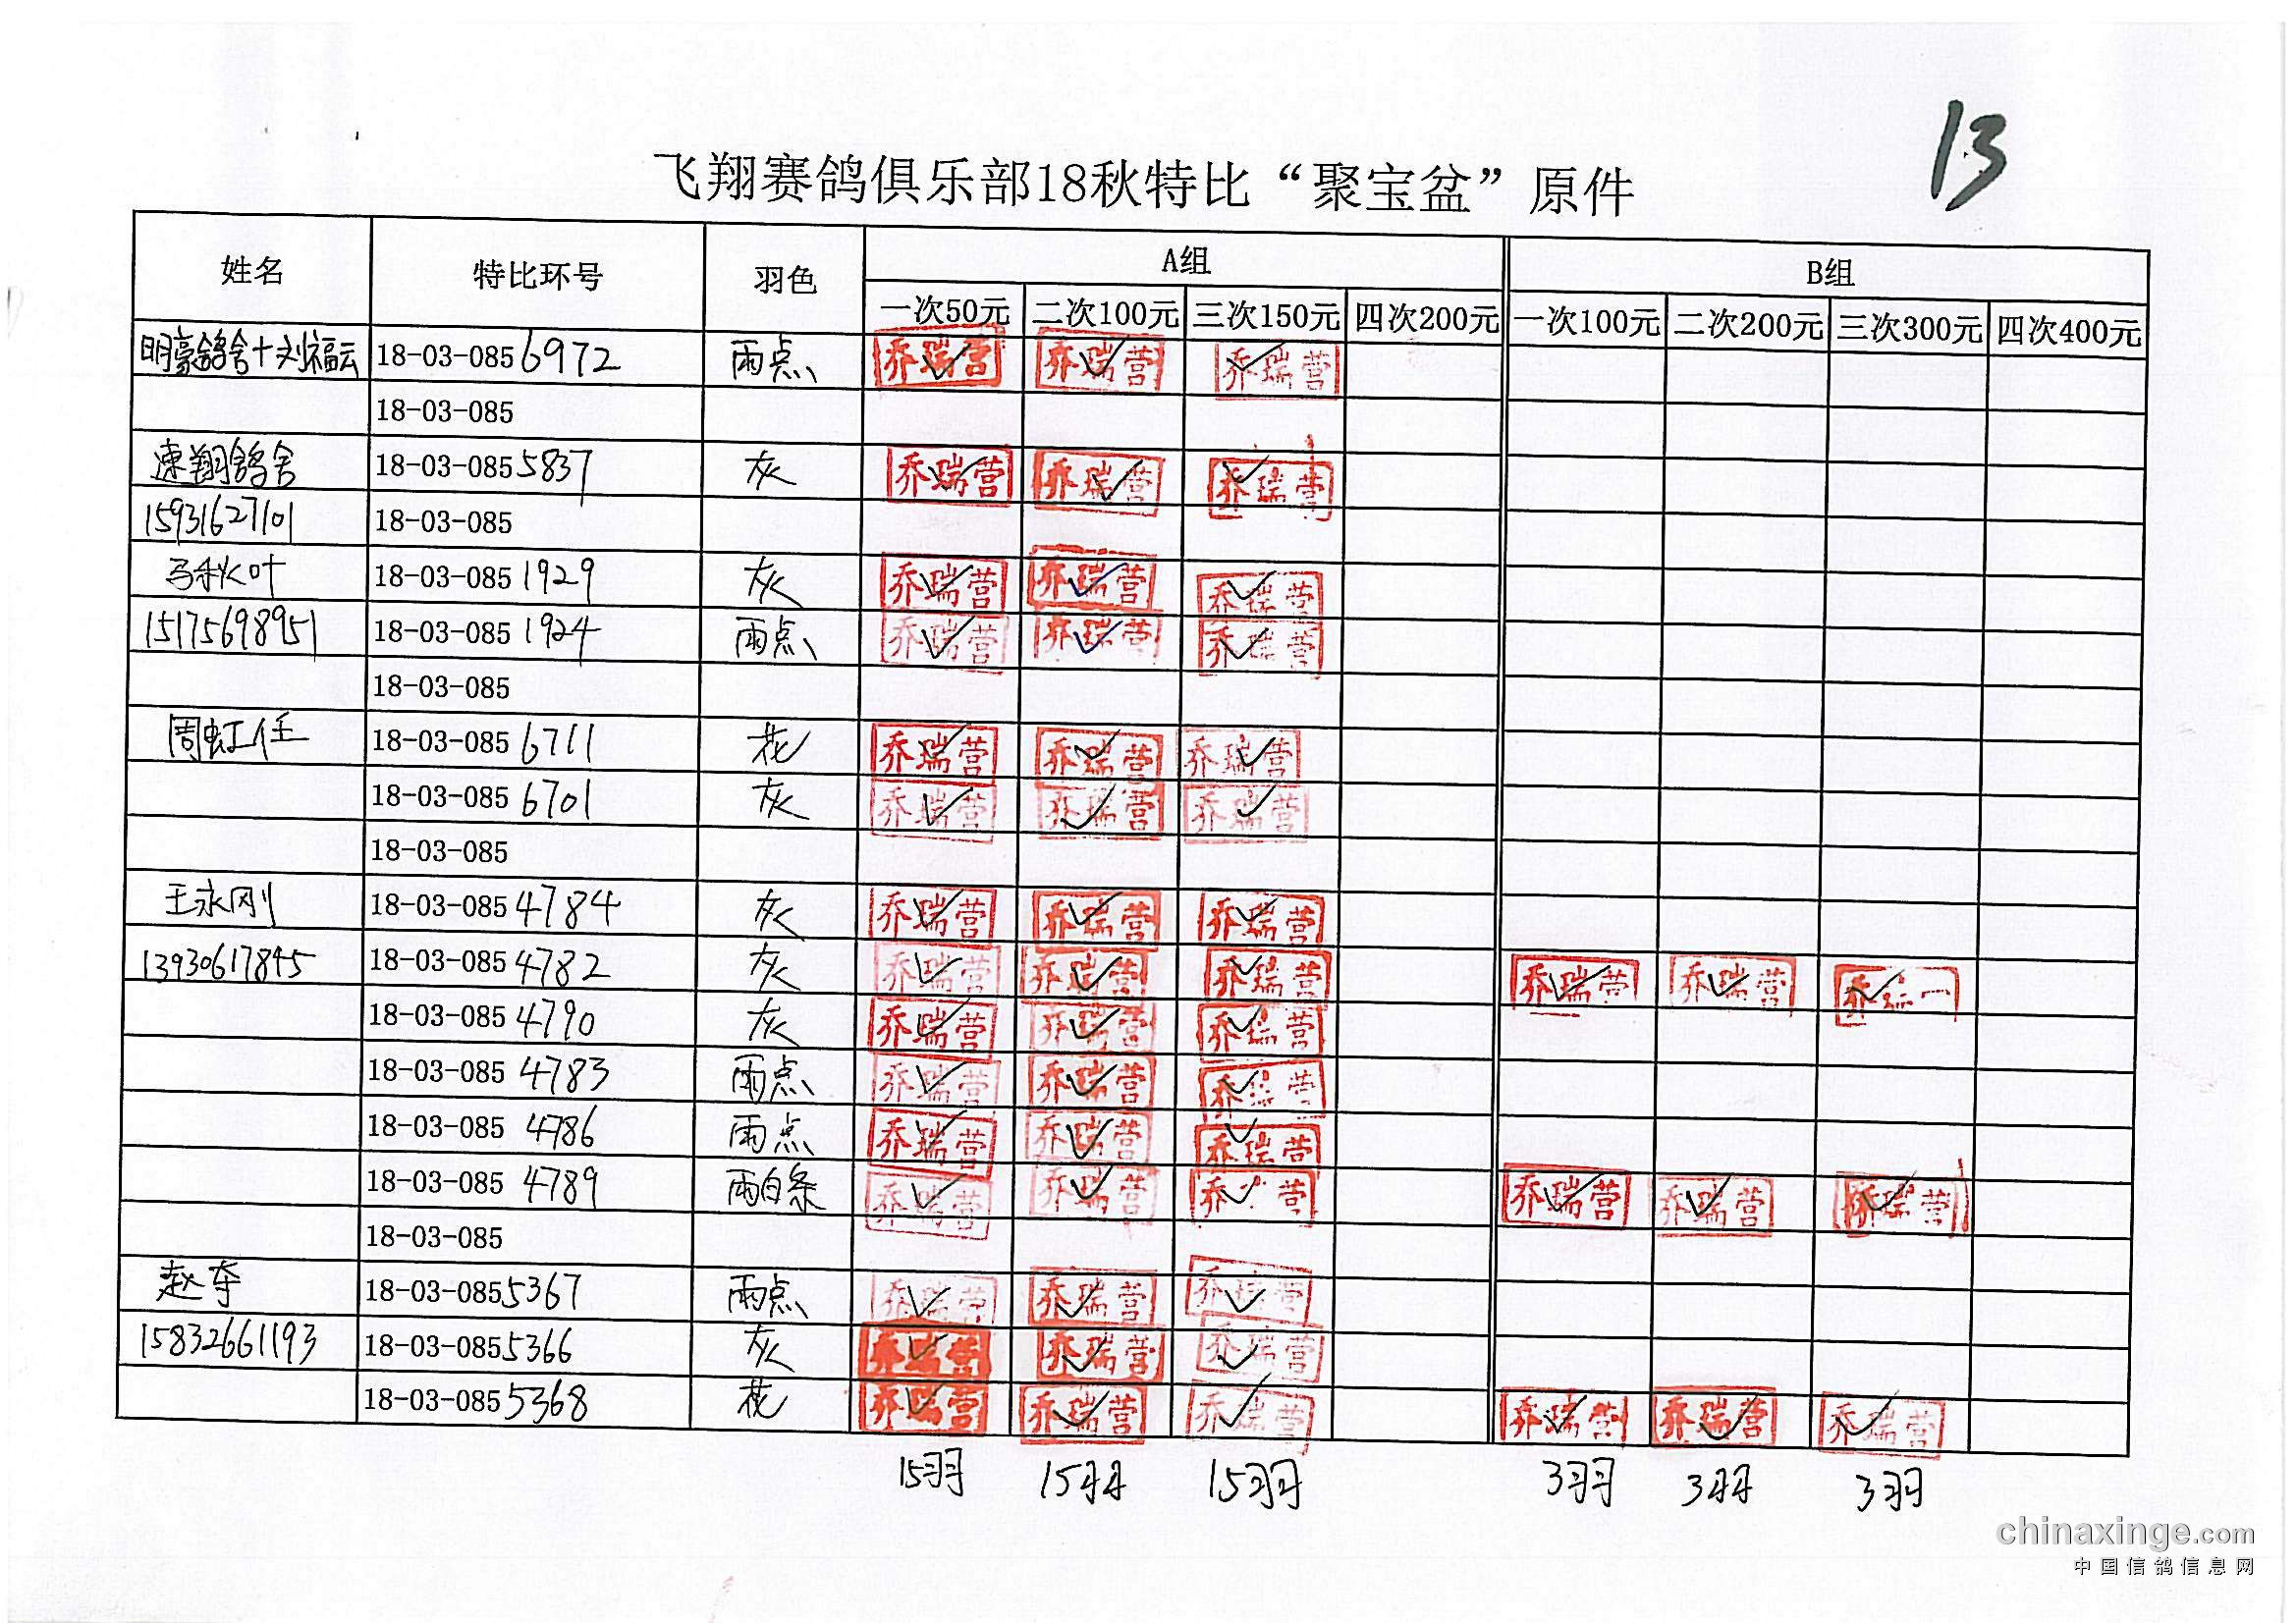 13
飞翔赛鸽俱乐部18秋特比“聚宝盆”原件
姓名 特比环号 羽色 A组 B组
一次50元 二次100元 三次150元 四次200元 一次100元 二次200元 三次300元 四次400元
明豪鸽舍+刘福云 18-03-085 6972 雨点 乔瑞营✓ 乔瑞营✓ 乔瑞营✓
18-03-085
速翔鸽舍 18-03-085 5837 灰 乔瑞营✓ 乔瑞营✓ 乔瑞营✓
15931627101 18-03-085
马秋叶 18-03-085 1929 灰 乔瑞营✓ 乔瑞营✓ 乔瑞营✓
15175698951 18-03-085 1924 雨点 乔瑞营✓ 乔瑞营✓ 乔瑞营✓
18-03-085
周虹任 18-03-085 6711 花 乔瑞营✓ 乔瑞营✓ 乔瑞营✓
18-03-085 6701 灰 乔瑞营✓ 乔瑞营✓ 乔瑞营✓
18-03-085
王永刚 18-03-085 4784 灰 乔瑞营✓ 乔瑞营✓ 乔瑞营✓
13930617845 18-03-085 4782 灰 乔瑞营✓ 乔瑞营✓ 乔瑞营✓ 乔瑞营✓ 乔瑞营✓ 乔瑞✓
18-03-085 4790 灰 乔瑞营✓ 乔瑞营✓ 乔瑞营✓
18-03-085 4783 雨点 乔瑞营✓ 乔瑞营✓ 乔瑞营✓
18-03-085 4786 雨点 乔瑞营✓ 乔瑞营✓ 乔瑞营✓
18-03-085 4789 雨白条 乔瑞营✓ 乔瑞营✓ 乔瑞营✓ 乔瑞营✓ 乔瑞营✓ 乔瑞营✓
18-03-085
赵夺 18-03-085 5367 雨点 乔瑞营✓ 乔瑞营✓ 乔瑞营✓
15832661193 18-03-085 5366 灰 乔瑞营✓ 乔瑞营✓ 乔瑞营✓
18-03-085 5368 花 乔瑞营✓ 乔瑞营✓ 乔瑞营✓ 乔瑞营✓ 乔瑞营✓ 乔瑞营✓
15羽 15羽 15羽 3羽 3羽 3羽
chinaxinge.com
中国信鸽信息网